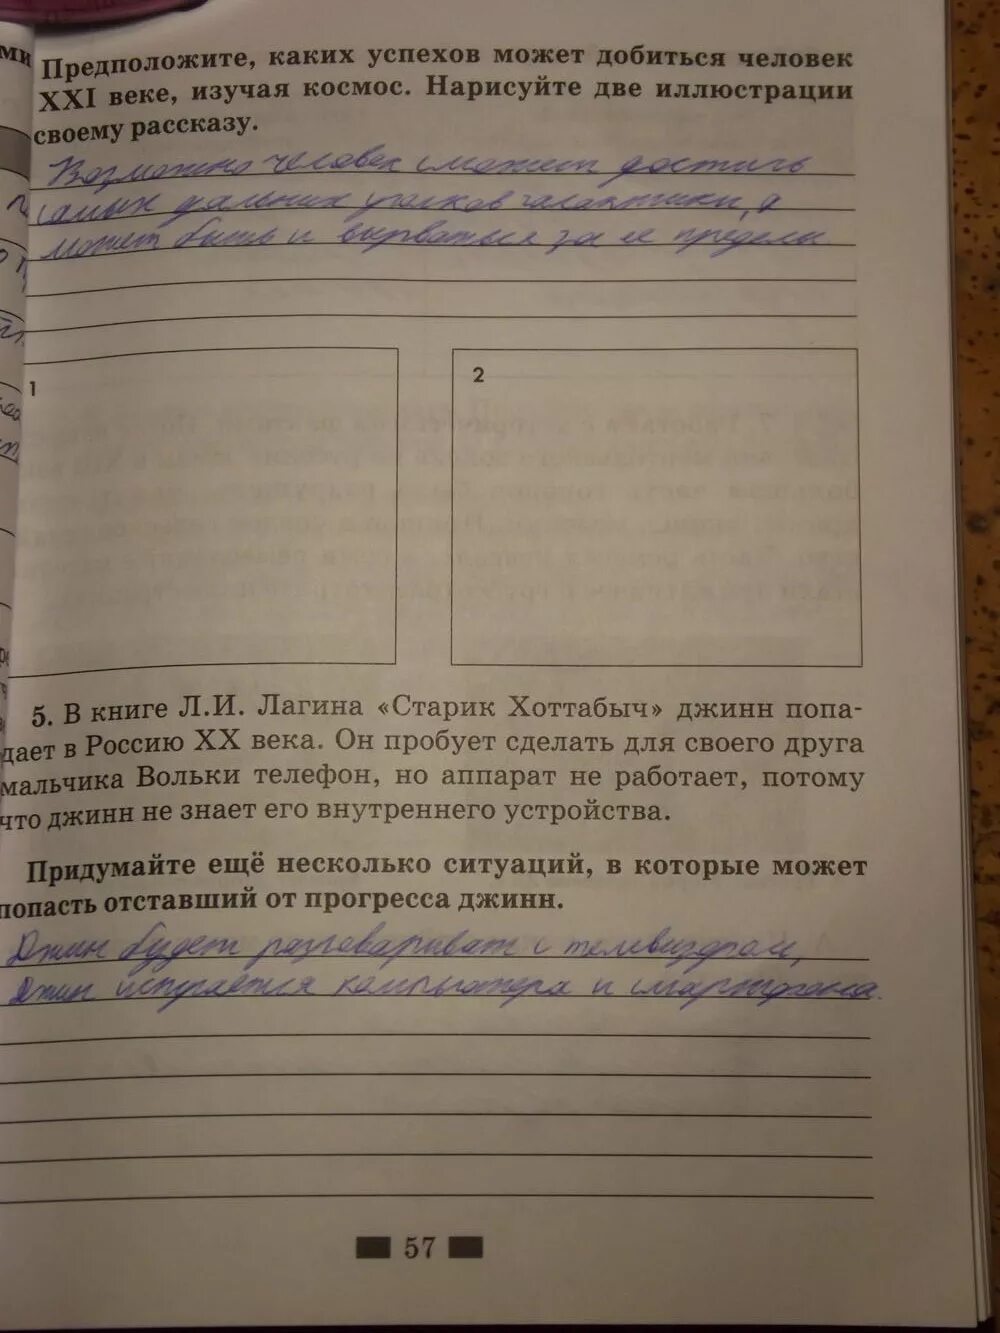 ми
Предположите, каких успехов может добиться человек
XXI веке, изучая космос. Нарисуйте две иллюстрации
своему рассказу.
Возможно человек сможет достичь
самых дальних уголков галактики, а
может быть и вырваться за ее пределы
1
2
5. В книге Л.И. Лагина «Старик Хоттабыч» джинн попа-
дает в Россию XX века. Он пробует сделать для своего друга
мальчика Вольки телефон, но аппарат не работает, потому
что джинн не знает его внутреннего устройства.
Придумайте ещё несколько ситуаций, в которые может
попасть отставший от прогресса джинн.
Джин будет разговариват с телевизором,
Джин испугается компьютера и смартфона.
57